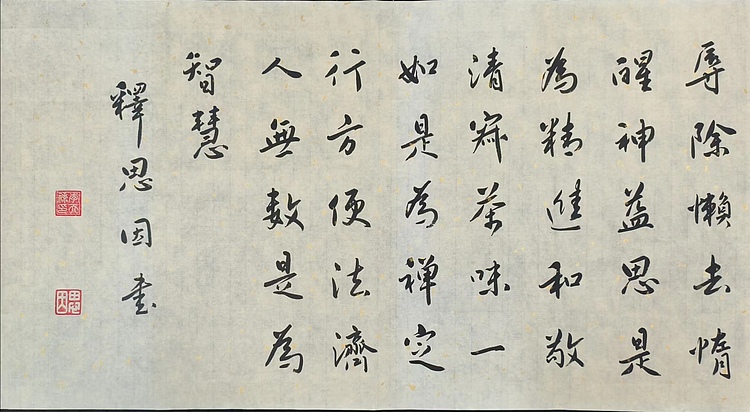 辱除懶去惰
醒神益思是
為精進和敬
清寂茶味一
如是為禪定
行方便法濟
人無數是為
智慧
釋思因書